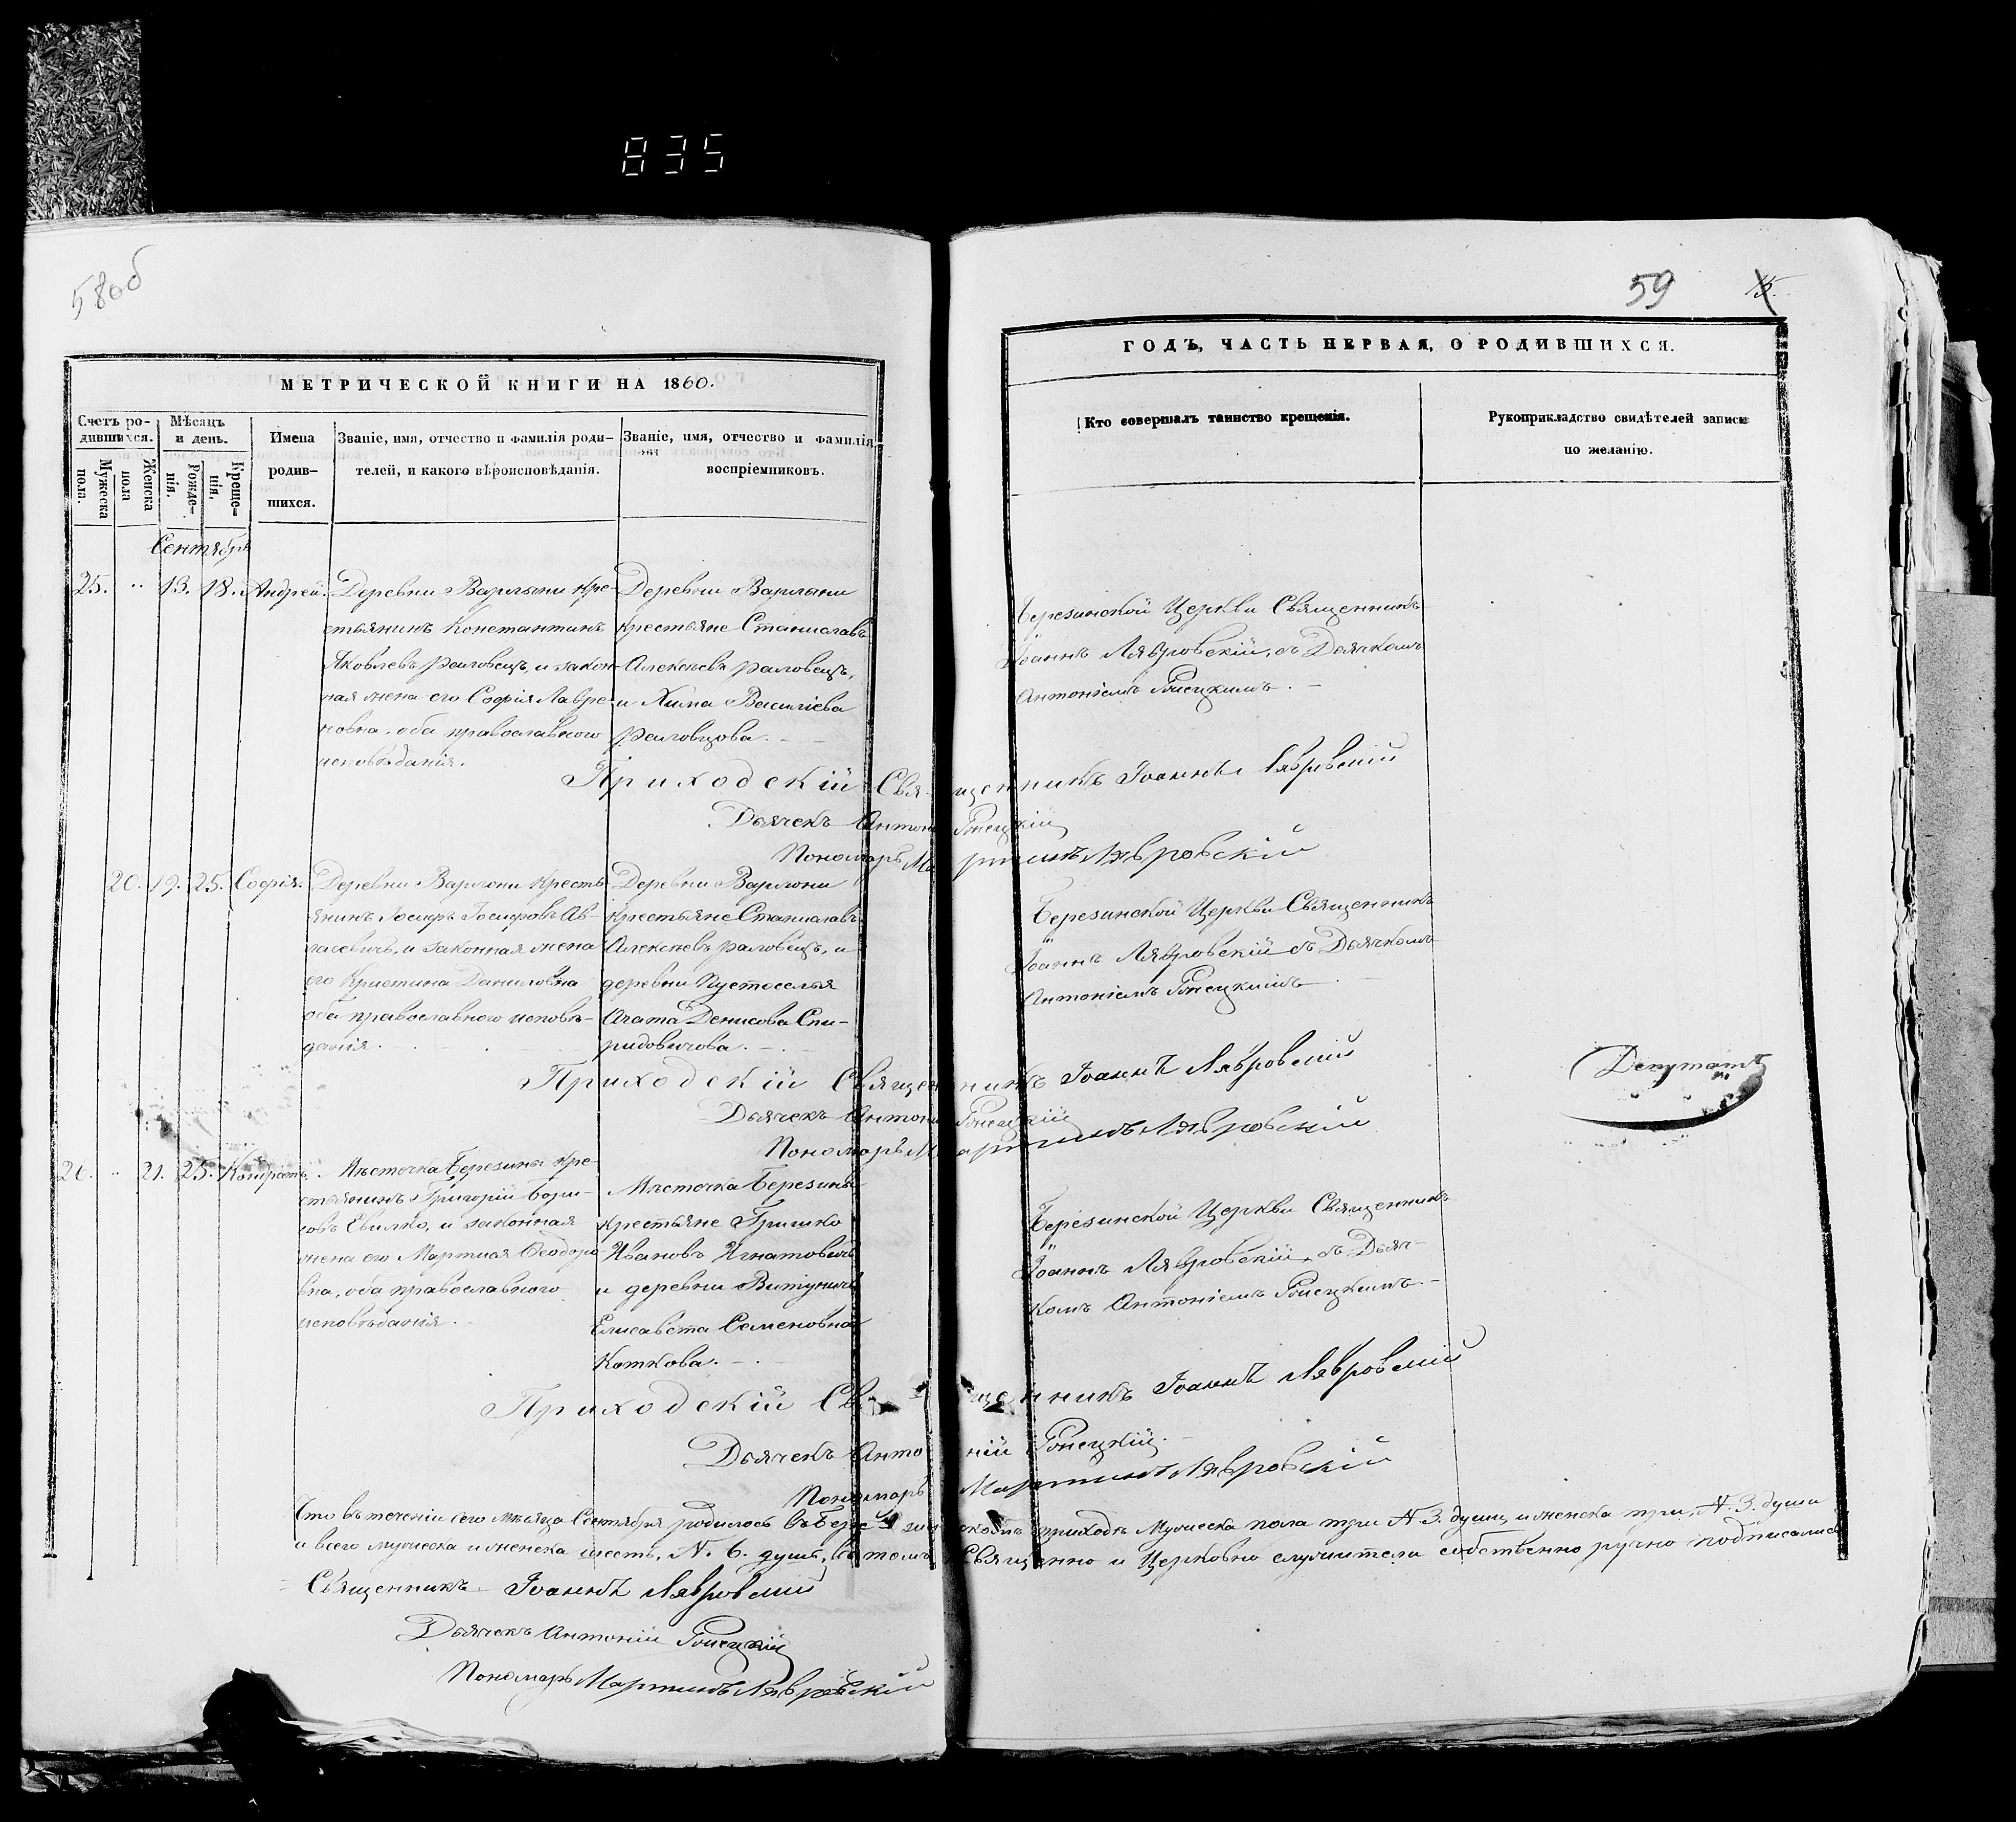 835
58 об
59
15.
МЕТРИЧЕСКОЙ КНИГИ НА 1860.
Счетъ ро-
дившихся.
Мужеска
пола.
Женска
пола
Мѣсяцъ
и день.
Рожде-
нія.
Креще-
нія.
Имена
родив-
шихся.
Званіе, имя, отчество и фамилія роди-
телей, и какого вѣроисповѣданія.
Званіе, имя, отчество и фамилія
воспріемниковъ.
ГОДЪ, ЧАСТЬ ПЕРВАЯ, О РОДИВШИХСЯ.
Кто совершалъ таинство крещенія.
Рукоприкладство свидѣтелей записи
по желанію.
Сентябрь
25. 13. 18. Андрей.
Деревни Варлыни кре-
стьянинъ Константинъ
Яковлевъ и закон-
ная жена его Софія Лавре-
новна, оба православнаго
исповѣданія.
Деревни Варлыни
крестьяне Станиславъ
Алексѣевъ
и Хима Василіева
Березинской Церкви Священникъ
Іоаннъ Лявровскій, съ Дьячкомъ
Антоніемъ
Приходскій Священникъ Іоаннъ Лявровскій
Дьячекъ Антоній
Пономарь Мартинъ Лявровскій
20. 19. 25. Софія.
Деревни Варлыни Кресть-
янинъ Іосифъ Іосифовъ Ав-
ласевичъ, и законная жена
его Кристина Даниловна
оба православнаго исповѣ-
данія.
Деревни Варлыни
крестьяне Станиславъ
Алексѣевъ и
деревни Пустоселья
Агата Денисова Спи-
ридовичова.
Березинской Церкви Священникъ
Іоаннъ Лявровскій съ Дьячкомъ
Антоніемъ
Приходскій Священникъ Іоаннъ Лявровскій
Дьячекъ Антоній
Пономарь Мартинъ Лявровскій
Депутатъ
26. 21. 25. Кондратъ.
Мѣстечка Березины кре-
стьянинъ Григорій Бори-
совъ и законная
жена его Ѳеодоро-
вна, оба православнаго
исповѣданія.
Мѣстечка Березины
крестьяне Гришко
Ивановъ Игнатовичъ
и деревни Витуничъ
Елисавета Семеновна
Коткова.
Березинской Церкви Священникъ
Іоаннъ Лявровскій, съ Дьяч-
комъ Антоніемъ
Приходскій Священникъ Іоаннъ Лявровскій
Дьячекъ Антоній
Пономарь Мартинъ Лявровскій
Что въ теченіи сего мѣсяца Сентября родилось въ Березинскомъ приходѣ Мужеска пола три №. 3. души, и женска три, №. 3. души
а всего мужеска и женска шесть, №. 6. душъ, въ томъ Священно и Церковно служители собственно ручно подписались
Священникъ Іоаннъ Лявровскій
Дьячекъ Антоній
Пономарь Мартинъ Лявровскій